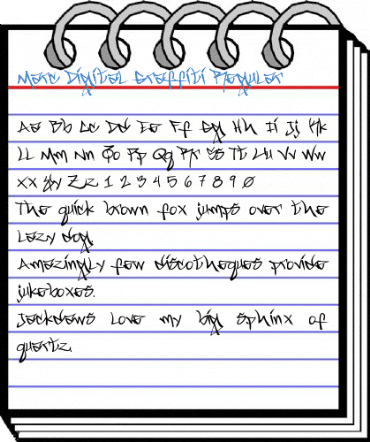 Marc Digital Graffiti Regular
Aa Bb Cc Dd Ee Ff Gg Hh Ii Jj Kk
Ll Mm Nn Oo Pp Qq Rr Ss Tt Uu Vv Ww
Xx Yy Zz 1 2 3 4 5 6 7 8 9 0
The quick brown fox jumps over the
Lazy dog.
Amazingly few discotheques provide
jukeboxes.
Jackdaws love my big sphinx of
quartz.